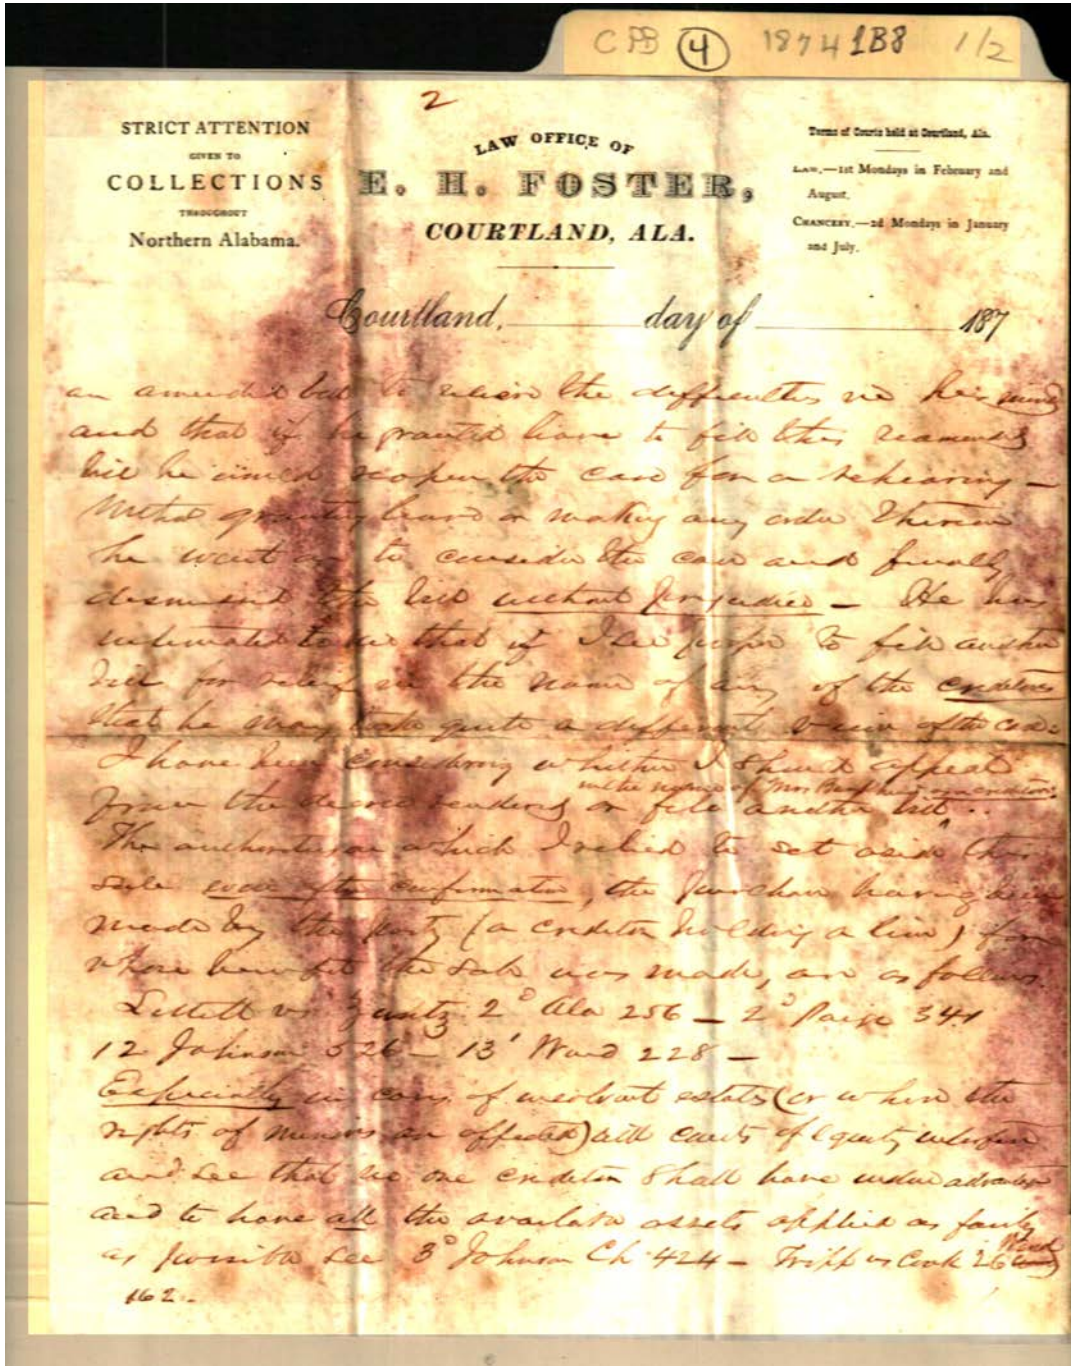 CPB 4 1874 1B8 1/2
2
STRICT ATTENTION
GIVEN TO
COLLECTIONS
THROUGHOUT
Northern Alabama.
LAW OFFICE OF
E. H. FOSTER,
COURTLAND, ALA.
Terms of Courts held at Courtland, Ala.
LAW,—1st Mondays in February and
August.
CHANCERY.—2d Mondays in January
and July.
Courtland, day of 187
an amended bill to the difficulties in his mind
and that if he granted leave to file this amended
bill he would reopen the case for a rehearing —
granting leave or making any order therein
he went on to consider the case and finally
dismissed the bill without prejudice — He has
intimated to me that if I see proper to file another
bill for relief in the name of any of the creditors
that he may take quite a different view of the case
I have been considering whether I should appeal
in the name of Mrs as a creditor
from the decree rendered or file another bill.
The authorities on which I relied to set aside this
sale even after confirmation, the purchase having been
made by the party (a creditor holding a lien) for
whose benefit the sale was made, are as follows
vs 2 Ala 256 — 2 Paige 341
12 Johnson 526 — 13 Wend 228 —
Especially in cases of insolvent estates (or where the
rights of minors are affected) will courts of equity interfere
and see that no one creditor shall have undue advantage
and to have all the available assets applied as fairly
as possible see 3 Johnson Ch 424 — Tripp vs Cook 26 Wend
162.